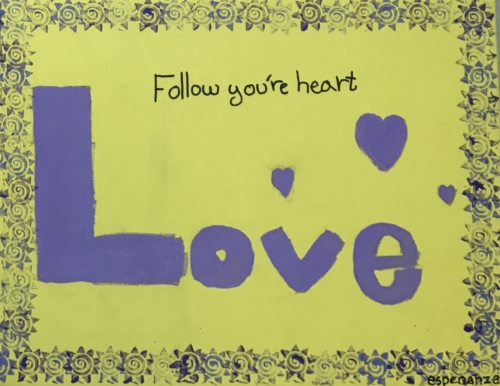 Follow you're heart
Love
esperanza